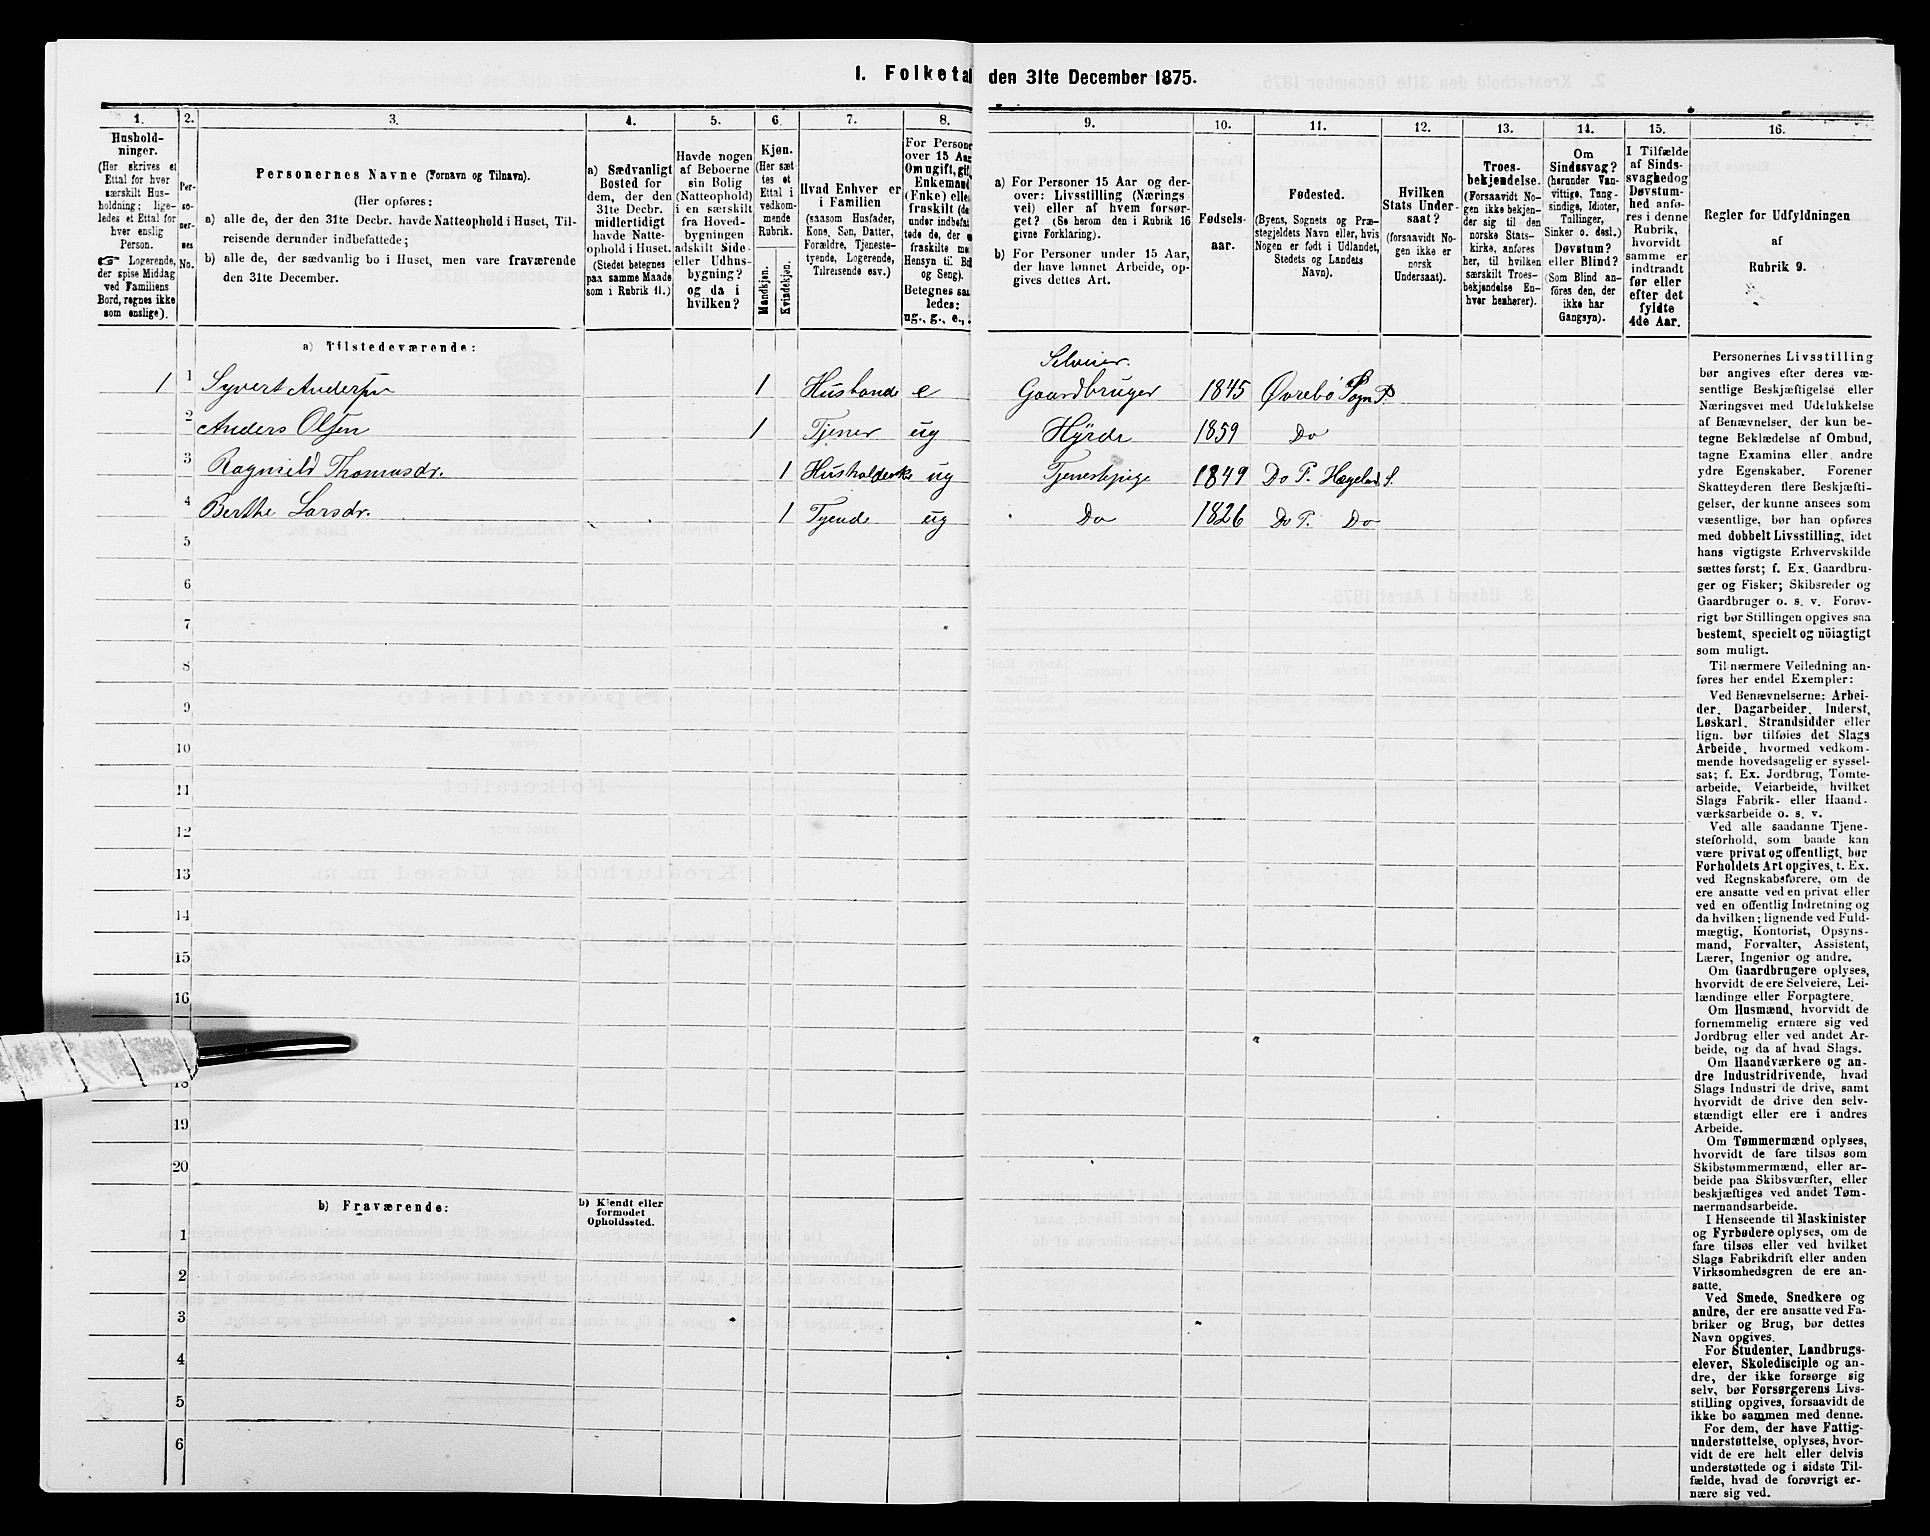 1. Folketa den 31te December 1875.
1. 2. 3. 4. 5. 6. 7. 8. 9. 10. 11. 12. 13. 14. 15. 16.
Hushold-
ninger.
(Her skrives et
Ettal for hver
særskilt Hus-
holdning; lige-
ledes et Ettal for
hver enslig
Person.
☞ Logerende,
der spise Middag
ved Familiens
Bord, regnes ikke
som enslige).
Per-
so-
ner-
nes
No.
Personernes Navne (Fornavn og Tilnavn).
(Her opføres:
a) alle de, der den 31te Decbr. havde Natteophold i Huset, Til-
reisende derunder indbefattede;
b) alle de, der sædvanlig bo i Huset, men vare fraværende
den 31te December.
a) Sædvanligt
Bosted for
dem, der den
31te Decbr.
midlertidigt
havde Natte-
ophold i Huset.
(Stedet betegnes
paa samme Maade
som i Rubrik 11.)
Havde nogen
af Beboerne
sin Bolig
(Natteophold)
i en særskilt
fra Hoved-
bygningen
adskilt Side-
eller Udhus-
bygning?
og da i
hvilken?
Kjøn.
(Her sæt-
tes et
Ettal i
vedkom-
mende
Rubrik.
Mandkjøn.
Kvindekjøn.
Hvad Enhver er
i Familien
(saasom Husfader,
Kone, Søn, Datter,
Forældre, Tjeneste-
tyende, Logerende,
Tilreisende osv.)
For Persone
over 15 Aar
Om ugift, gif
Enkemand
(Enke) elle
fraskilt (de
under indbefat
tede de, der e
fraskilte me
Hensyn til Bo
og Seng).
Betegnes saa
ledes:
ug., g., e., .
a) For Personer 15 Aar og der-
over: Livsstilling (Nærings
vei) eller af hvem forsør-
get? (Se herom den i Rubrik 16
givne Forklaring).
b) For Personer under 15 Aar,
der have lønnet Arbeide, op-
gives dettes Art.
Fødsels-
aar.
Fødested.
(Byens, Sognets og Præ-
stegjeldets Navn eller, hvis
Nogen er født i Udlandet,
Stedets og Landets
Navn).
Hvilken
Stats Under-
saat?
(forsaavidt No-
gen ikke er
norsk
Undersaat).
Troes-
bekjendelse.
(Forsaavidt No-
gen ikke bekjen-
der sig til den
norske Stats-
kirke, anføres
her, til hvilken
særskilt Troes-
bekjendelse En-
hver henhører).
Om
Sindssvag?
(herunder Van-
vittige, Tung-
sindige, Idioter,
Tullinger,
Sinker o. desl.)
Døvstum?
eller Blind?
(Som Blind an-
føres den, der
ikke har
Gangsyn).
I Tilfælde
af Sinds-
svaghed og
Døvstum-
hed anfø-
res i denne
Rubrik,
hvorvidt
samme er
indtraadt
før eller
efter det
fyldte
4de Aar.
Regler for Udfyldningen
af
Rubrik 9.
a) Tilstedeværende:
Selveier.
1 1 Syvert Andersen 1 Husbonde e Gaardbruger 1845 Øvrebø Sogn P.
2 Anders Olsen 1 Tjener ug Hyrde 1859 Do
3 Ragnild Thomasdr. 1 Husholderske ug Tjenestepige 1849 Do P. Hægeland S.
4 Berthe Larsdr. 1 Tyende ug Do 1826 Do P. Do
5
6
7
8
9
10
11
12
13
14
15
16
18
19
20
b) Fraværende:
b) Kjendt eller
formodet
Opholdssted.
1
2
3
4
5
6
Personernes Livsstilling
bør angives efter deres væ-
sentlige Beskjæftigelse eller
Næringsvei med Udelukkelse
af Benævnelser, der kun be-
tegne Beklædelse af Ombud,
tagne Examina eller andre
ydre Egenskaber. Forener
Skatteyderen flere Beskjæfti-
gelser, der kunne ansees som
væsentlige, bør han opføres
med dobbelt Livsstilling, idet
hans vigtigste Erhvervskilde
sættes først; f. Ex. Gaardbru-
ger og Fisker; Skibsreder og
Gaardbruger o. s. v. Forøv-
rigt bør Stillingen opgives saa
bestemt, specielt og nöiagtigt
som muligt.
Til nærmere Veiledning an-
føres her endel Exempler:
Ved Benævnelserne: Arbei-
der, Dagarbeider, Inderst,
Løskarl, Strandsidder eller
lign. bør tilføies det Slags
Arbeide, hvormed vedkom-
mende hovedsagelig er syssel-
sat; f. Ex. Jordbrug, Tomte-
arbeide, Veiarbeide, hvilket
Slags Fabrik- eller Haand-
værksarbeide o. s. v.
Ved alle saadanne Tjene-
steforhold, som baade kan
være privat og offentligt, bør
Forholdets Art opgives, t. Ex.
ved Regnskabsførere, om de
ere ansatte ved en privat eller
ved en offentlig Indretning og
da hvilken; lignende ved Fuld-
mægtig, Kontorist, Opsyns-
mand, Forvalter, Assistent,
Lærer, Ingeniør og andre.
Om Gaardbrugere oplyses,
hvorvidt de ere Selveiere, Lei-
lændinge eller Forpagtere.
Om Husmænd, hvorvidt de
fornemmelig ernære sig ved
Jordbrug eller ved andet Ar-
beide, og da af hvad Slags.
Om Haandværkere og an-
dre Industridrivende, hvad
Slags Industri de drive, samt
hvorvidt de drive den selv-
stændigt eller ere i andres
Arbeide.
Om Tømmermænd oplyses,
hvorvidt de fare tilsøs som
Skibstømmermænd, eller ar-
beide paa Skibsværfter, eller
beskjæftiges ved andet Tøm-
mermandsarbeide.
I Henseende til Maskinister
og Fyrbødere oplyses, om de
fare tilsøs eller ved hvilket
Slags Fabrikdrift eller anden
Virksomhedsgren de ere an-
satte.
Ved Smede, Snedkere og
andre, der ere ansatte ved Fa-
briker og Brug, bør dettes
Navn opgives.
For Studenter, Landbrugs-
elever, Skoledisciple og an-
dre, der ikke forsørge sig
selv, bør Forsørgerens Livs-
stilling opgives, forsaavidt de
ikke bo sammen med denne.
For dem, der have Fattig-
understøttelse, oplyses, hvor-
vidt de ere helt eller delvis
understøttede og i sidste Til-
fælde, hvad de forøvrigt er-
nære sig ved.